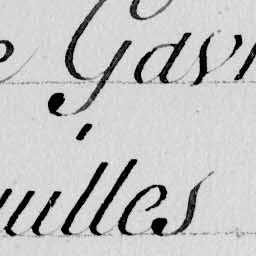 e Gavr
uilles